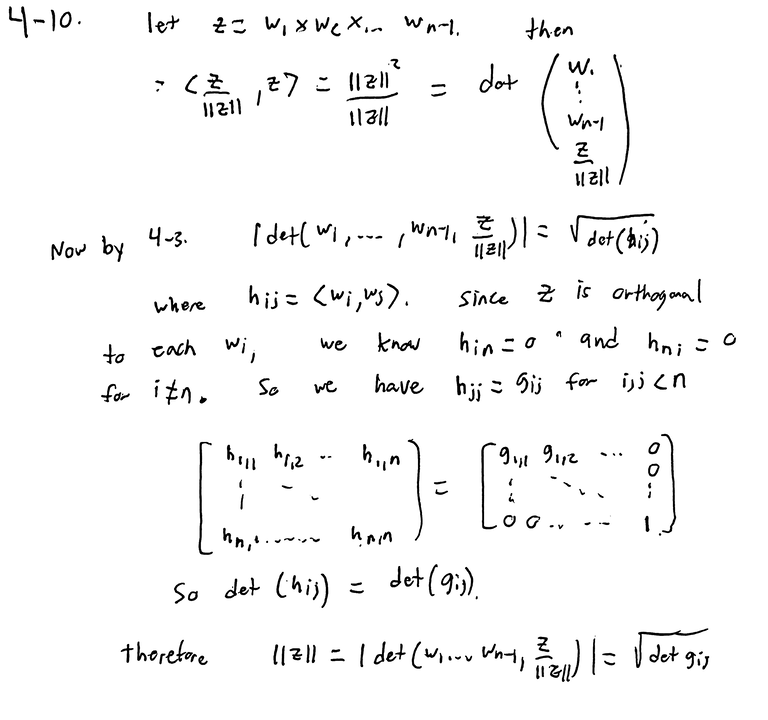 4-10. let z = w₁ × w₂ × ... w_{n-1}. then
= ⟨z/||z||, z⟩ = ||z||²/||z|| = det (w₁ ⋮ w_{n-1} z/||z||)
Now by 4-3. |det(w₁, ..., w_{n-1}, z/||z||)| = √det(h_{ij})
where h_{ij} = ⟨w_i, w_j⟩. since z is orthogonal
to each w_i, we know h_{in} = 0 and h_{ni} = 0
for i≠n. So we have h_{ij} = g_{ij} for i,j < n
[h_{1,1} h_{1,2} .. h_{1,n} ⋮ h_{n,1} ...... h_{n,n}] = [g_{1,1} g_{1,2} ... 0 0 ⋮ 0 0 .. ... 1]
So det (h_{ij}) = det(g_{ij}).
therefore ||z|| = |det(w₁ ... w_{n-1}, z/||z||)| = √det g_{ij}